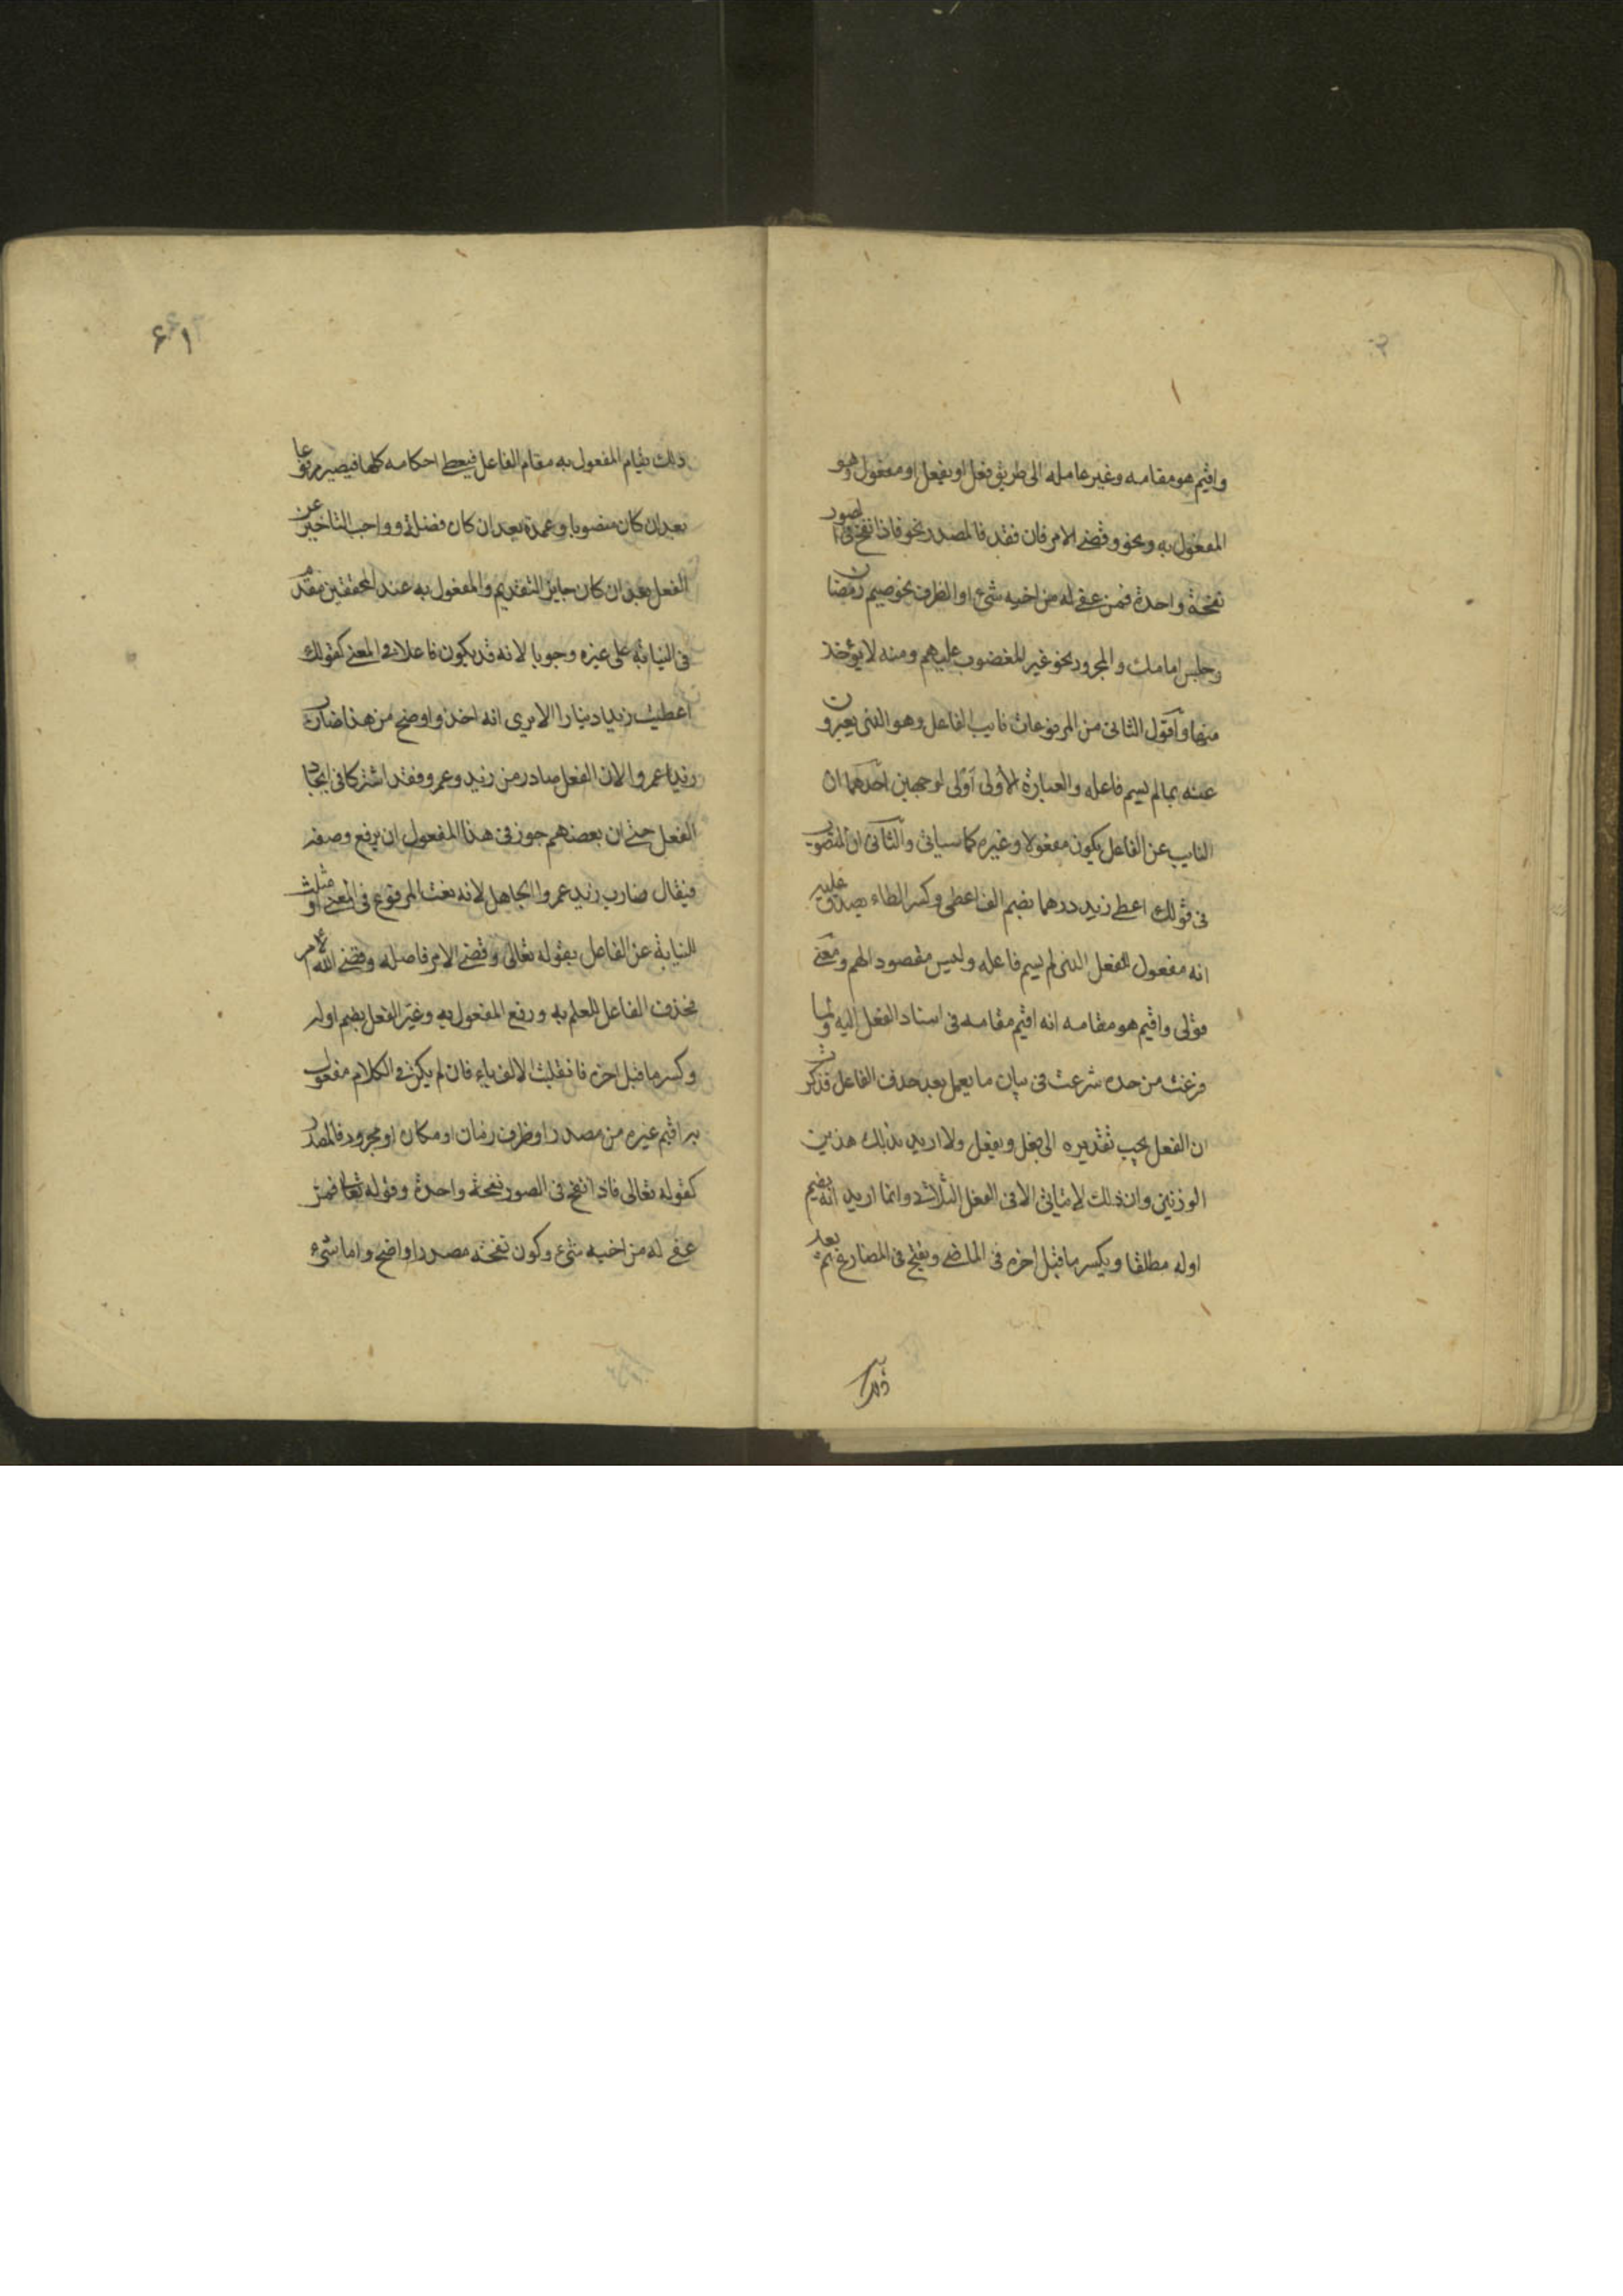 واقيم هو مقامه وغير عامله الى طريق فعل او يفعل او مفعول وهو
المفعول به ونحو وقضى الامر فان فقد فالمصدر نحو فاذا نفخ فى الصور
نفخة واحدة فمن عفى له من اخيه شىء او الظرف نحو صيم رمضان
وجلس امامك والمجرور نحو غير المغضوب عليهم ومنه لا يؤخذ
منها واقول الثانى من المرفوعات نايب الفاعل وهو الذى يعبرون
عنه بما لم يسم فاعله والعبارة الاولى اولى لوجهين احدهما ان
النايب عن الفاعل يكون مفعولا وغيره كما سياتى والثانى ان المنصوب
فى قولك اعطى زيد درهما بضم الف اعطى وكسر الطاء يصدق عليه
انه مفعول للفعل الذى لم يسم فاعله وليس مقصود الهم ومعنى
قولى واقيم هو مقامه انه اقيم مقامه فى اسناد الفعل اليه ولما
فرغت من حده شرعت فى بيان ما يعمل بعد حذف الفاعل فذكرت
ان الفعل يجب تقديره الى فعل ويفعل ولا اريد بذلك هذين
الوزنين وان ذلك لا يتاتى الا فى الفعل الثلاثى وانما اريد انه يضم
اوله مطلقا ويكسر ما قبل اخره فى الماضى ويفتح فى المضارع ثم بعد
۶۱
ذلك يقام المفعول به مقام الفاعل فيعطى احكامه كلها فيصير مرفوعا
بعد ان كان منصوبا وعمدة بعد ان كان فضلة وواجب التاخير عن
الفعل بعد ان كان جايز التقديم والمفعول به عند المحققين مقدم
فى النيابة على غيره وجوبا لانه قد يكون فاعلا فى المعنى كقولك
اعطيت زيدا دينارا الا يرى انه اخذ واوضح من هذا ضارب
زيدا عمروا لان الفعل صادر من زيد وعمرو فقد اشتركا فى ايجاد
الفعل حتى ان بعضهم جوز فى هذا المفعول ان يرفع وصفه
فيقال ضارب زيد عمروا الجاهل لانه نعت المرفوع فى المعنى ومثلت
للنيابة عن الفاعل بقوله تعالى وقضى الامر فاصله وقضى الله الامر
فحذف الفاعل للعلم به ورفع المفعول به وغير الفعل بضم اوله
وكسر ما قبل اخره فانقلبت الالف ياء فان لم يكن فى الكلام مفعول
به اقيم غيره من مصدر او ظرف زمان او مكان او مجرور فالمصدر
كقوله تعالى فاذا نفخ فى الصور نفخة واحدة وقوله تعالى فمن
عفى له من اخيه شىء وكون نفخة مصدرا واضح واما شىء